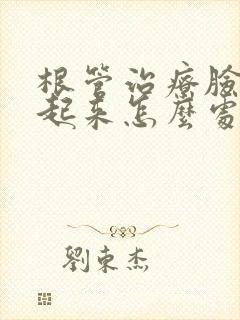 根管治療臉
起来怎麼處
劉東杰